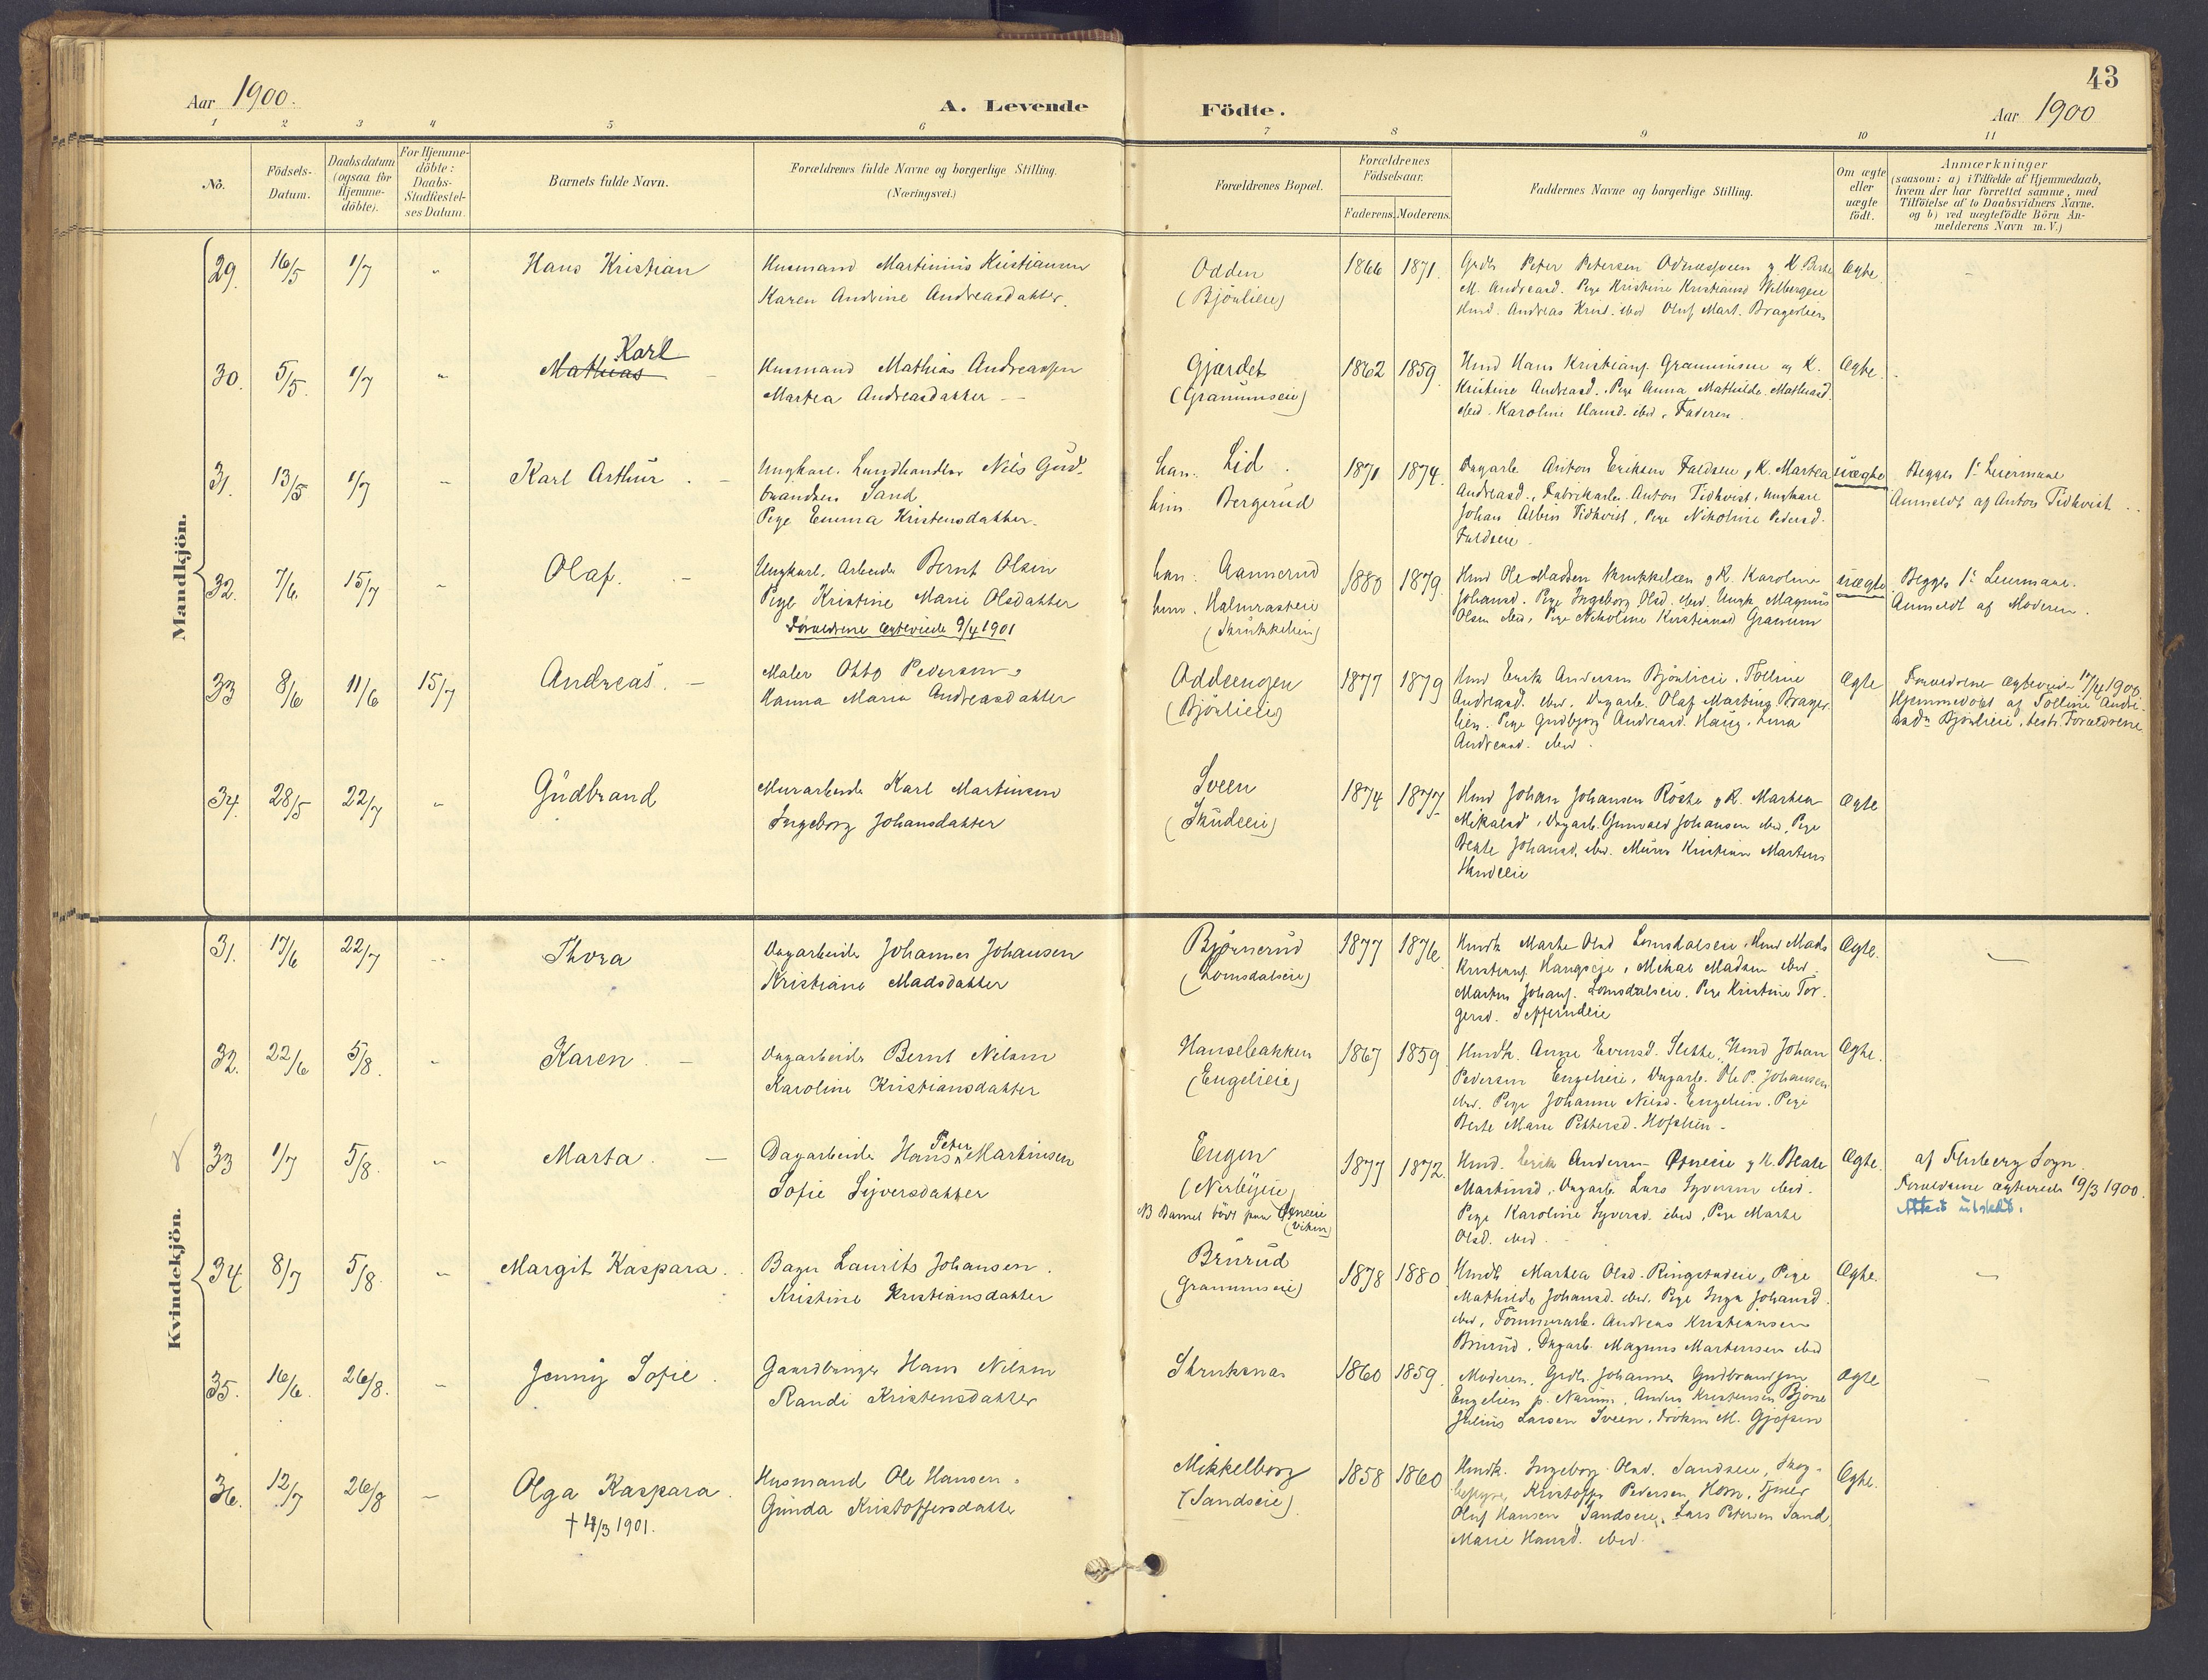 43
Aar 1900.
A. Levende
Födte.
Aar 1900
1 2 3 4 5 6 7 8 9 10 11
No.
Födsels-
Datum.
Daabsdatum
(ogsaa for
Hjemme-
döbte).
For Hjemme-
döbte:
Daabs-
Stadfæstel-
ses Datum.
Barnets fulde Navn.
Forældrenes fulde Navne og borgerlige Stilling.
(Næringsvei.)
Forældrenes Bopæl.
Forældrenes
Födselsaar.
Faderens. Moderens.
Faddernes Navne og borgerlige Stilling.
Om ægte
eller
uægte
födt.
Anmærkninger
(saasom: a) i Tilfælde af Hjemmedaab,
hvem der har forrettet samme, med
Tilföielse af to Daabsvidners Navne.
og b) ved uægtefödte Börn An-
melderens Navn m.V.)
Mandkjön.
29. 16/5 1/7 "
Hans Kristian
Husmand Martinius Kristiansen
Karen Andrine Andreasdatter.
Odden
(Bjönlieie)
1866 1871.
Peter Petersen
M. Andreasd. Pige Kristine Kristiansd
Hmd. Andreas Krist. ibd Oluf Mart. Bragerlien
Ægte.
30. 5/5. 1/7 "
Karl
Mathias
Husmand Mathias Andreassen
Martea Andreasdatter
Gjærdet
(Granumseie)
1862 1859.
Hmd Hans Kristians. Granumseie og K.
Kristine Andreasd. Pige Anna Mathilde Mathiasd.
ibid. Karoline Hansd. ibd. Faderen.
Ægte.
31. 13/5 1/7 "
Karl Arthur.
Ungkarl. Landhandler Nils Gud-
brandsen Sand
Pige Emma Kristensdatter.
han: Lid.
hun. Bergerud
1871 1874.
Dagarb. Anton Eriksen Faldseie og K. Martea
Andreasd., Fabrikarb. Anton Tidkvist, Ungkarl
Johan Albin Tidkvist, Pige Nikoline Pedersd.
Faldseie.
uægte
Begges 1ste Leiermaal
Anmeldt af Anton Tidkvist.
32. 7/6 15/7 "
Olaf.
Ungkarl. Arbeider Bernt Olsen
Pige Kristine Marie Olsdatter
Forældrene Ægteviede 9/4 1901
han: Aannerud
hun. Halmrasteie
(Skrukkelien)
1880 1879.
Hmd Ole Madsen Skrukkelien og K. Karoline
Johansd. Pige Ingeborg Olsd. ibd. Ungk Magnus
Olsen ibd, Pige Nikoline Kristiansd Granum
uægte
Begges 1ste Leiermaal.
Anmeldt af Moderen.
33 8/6 11/6 15/7
Andreas.
Maler Otto Pedersen
Hanna Maria Andreasdatter
Addeengen
(Bjönlieie)
1877 1879
Hmd Erik Andersen Bjönlieie. Tolline
Andreasd. ibd. Dagarb. Olaf Martins. Brager-
lien. Pige Gudbjörg Andreasd. Haug. Lina
Andreasd. ibid.
Ægte
Forældrene Ægteviede 17/4 1900.
Hjemmedöbt af Tolline Andre-
asd. Bjönlieie, test. Forældrene
34. 28/5 22/7 "
Gudbrand
Murarbeider Karl Martinsen
Ingeborg Johansdatter
Sveen
(Skudeeie)
1874 1877
Hmd Johan Johansen Röste og K. Marthea
Mikalsd, Dagarb. Gunvald Johansen ibd. Pige
Beate Johansd. ibd. Murer Kristian Martins
Ægte
Kvindekjön.
31. 17/6 22/7 "
Thora
Dagarbeider Johannes Johansen
Kristiane Madsdatter
Bjørnerud
(Lomsdalseie)
1877 1876.
Hmdk Marte Olsd Lomsdalseie. Hmd Mads
Kristians. Haugseie, Mikal Madsen ibd.
Martin Johans. Lomsdalseie. Pige Kristine Tor-
gersd.
Ægte.
32. 22/6 5/8. "
Karen.
Dagarbeider Bernt Nilsen
Karoline Kristiansdatter
Hansebakken
(Engelieie)
1867 1859.
Hmdk. Anne Evensd. Slette, Hmd Johan
Pedersen Engelieie, Dagarb. Ole P. Johansen
ibd. Pige Johanne Nilsd. Engelien. Pige
Berte Marie Pettersd. Hofslien.
Ægte.
33 1/7 5/8. "
Marta.
Dagarbeider Hans Peter Martinsen
Sofie Syversdatter
Engen
(Nerbyeie)
NB Barnet födt paa Øyneeie
(Viken)
1877 1872.
Hmd. Erik Andersen Øyneeie og K. Beate
Martinsd, Dagarb. Lars Syversen ibd.
Pige Karoline Syversd. ibd, Pige Marte
Olsd. ibid.
Ægte.
af Fluberg Sogn.
Forældrene ægteviede 19/3 1900.
Attest udstedt.
34 8/7 5/8. "
Margit Kaspara.
Bager Laurits Johansen.
Kristine Kristiansdatter
Brurud
(Granumseie)
1878 1880.
Hmdk Marthea Olsd. Ringstadeie, Pige
Mathilde Johansd. ibd. Pige Inga Johansd.
ibd, Tömmerarb. Andreas Kristiansen
Brurud. Dagarb. Magnus Martinsen ibd
Ægte.
35. 16/6. 26/8. "
Jenny Sofie.
Gaardbruger Hans Nilsen
Randi Kristensdatter
Skruksnas
1860 1859.
Moderen, Grdb. Johannes Gudbrandsen
Engelien p. Narum. Anders Kristensen Bjöne
Julius Larsen Sveen. Fröken M. Gjöfsen
Ægte
36. 12/7 26/8 "
Olga Kaspara.
† 4/3 1901.
Husmand Ole Hansen
Gunda Kristoffersdatter
Mikkelborg
(Sandseie)
1858 1860
Hmdk. Ingeborg Olsd. Sandseie, Skog-
bestyrer Kristoffer Pedersen Horn,
Oluf Hansen Sandseie, Lars Petersen Sand,
Marie Hansd. ibid.
Ægte.